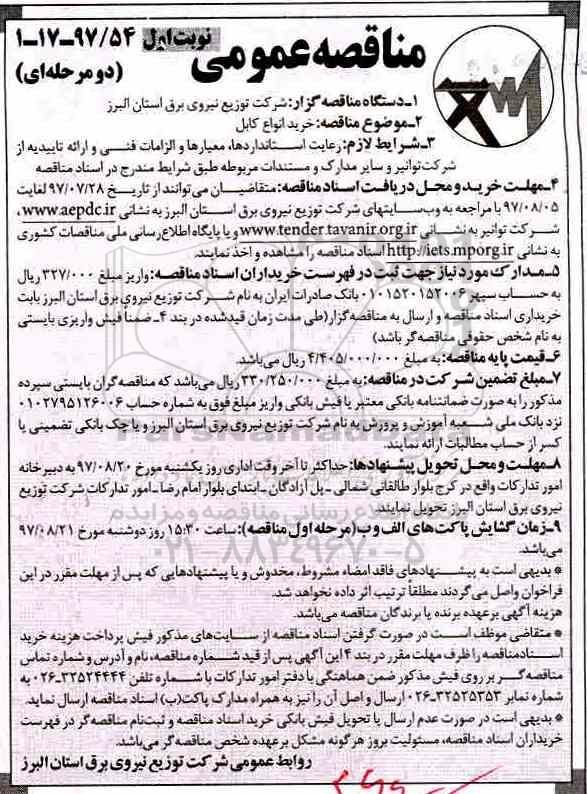 مناقصه عمومی
نوبت اول
۱-۱۷-۹۷/۵۴
(دو مرحله‌ای)
۱-دستگاه مناقصه گزار: شرکت توزیع نیروی برق استان البرز
۲-موضوع مناقصه: خرید انواع کابل
۳-شرایط لازم: رعایت استانداردها، معیارها و الزامات فنی و ارائه تاییدیه از
شرکت توانیر و سایر مدارک و مستندات مربوطه طبق شرایط مندرج در اسناد مناقصه
۴-مهلت خرید و محل دریافت اسناد مناقصه: متقاضیان می‌توانند از تاریخ ۹۷/۰۷/۲۸ لغایت
۹۷/۰۸/۰۵ با مراجعه به وب‌سایتهای شرکت توزیع نیروی برق استان البرز به نشانی www.aepdc.ir،
شرکت توانیر به نشانی www.tender.tavanir.org.ir و یا پایگاه اطلاع‌رسانی ملی مناقصات کشوری
به نشانی http://iets.mporg.ir اسناد مناقصه را مشاهده و اخذ نمایند.
۵-مدارک مورد نیاز جهت ثبت در فهرست خریداران اسناد مناقصه: واریز مبلغ ۳۲۷/۰۰۰ ریال
به حساب سپهر ۰۱۰۱۵۲۰۱۵۲۰۰۶ بانک صادرات ایران به نام شرکت توزیع نیروی برق استان البرز بابت
خریداری اسناد مناقصه و ارسال به مناقصه گزار(طی مدت زمان قیدشده در بند ۴-ضمناً فیش واریزی بایستی
به نام شخص حقوقی مناقصه‌گر باشد)
۶-قیمت پایه مناقصه: به مبلغ ۴/۴۰۵/۰۰۰/۰۰۰ ریال می‌باشد.
۷-مبلغ تضمین شرکت در مناقصه: به مبلغ ۳۳۰/۲۵۰/۰۰۰ ریال می‌باشد که مناقصه گران بایستی سپرده
مذکور را به صورت ضمانتنامه بانکی معتبر یا فیش بانکی واریز مبلغ فوق به شماره حساب ۰۱۰۲۷۹۵۱۲۶۰۰۶
نزد بانک ملی شعبه آموزش و پرورش به نام شرکت توزیع نیروی برق استان البرز و یا چک بانکی تضمینی یا
کسر از حساب مطالبات ارائه نمایند.
۸-مهلت و محل تحویل پیشنهادها: حداکثر تا آخر وقت اداری روز یکشنبه مورخ ۹۷/۰۸/۲۰ به دبیرخانه
امور تدارکات واقع در کرج بلوار طالقانی شمالی -پل آزادگان -ابتدای بلوار امام رضا-امور تدارکات شرکت توزیع
نیروی برق استان البرز تحویل نمایند.
۹-زمان گشایش پاکت‌های الف و ب(مرحله اول مناقصه): ساعت ۱۵:۳۰ روز دوشنبه مورخ ۹۷/۰۸/۲۱
می‌باشد.
* بدیهی است به پیشنهادهای فاقد امضاء مشروط، مخدوش و یا پیشنهادهایی که پس از مهلت مقرر در این
فراخوان واصل می‌گردند مطلقاً ترتیب اثر داده نخواهد شد.
هزینه آگهی برعهده برنده یا برندگان مناقصه می‌باشد.
* متقاضی موظف است در صورت گرفتن اسناد مناقصه از سایت‌های مذکور فیش پرداخت هزینه خرید
اسنادمناقصه را ظرف مهلت مقرر در بند ۴ این آگهی پس از قید شماره مناقصه، نام و آدرس و شماره تماس
مناقصه‌گر بر روی فیش مذکور ضمن هماهنگی با دفتر امور تدارکات با شماره تلفن ۳۲۵۲۴۴۴۴-۰۲۶ به
شماره نمابر ۳۲۵۲۵۳۵۳-۰۲۶ ارسال و اصل آن را نیز به همراه مدارک پاکت(ب) اسناد مناقصه ارسال نماید.
* بدیهی است در صورت عدم ارسال یا تحویل فیش بانکی خرید اسناد مناقصه و ثبت‌نام مناقصه‌گر در فهرست
خریداران اسناد مناقصه، مسئولیت بروز هرگونه مشکل برعهده شخص مناقصه‌گر می‌باشد.
روابط عمومی شرکت توزیع نیروی برق استان البرز
۰۲۱-۸۸۳۴۹۶۷۰-۵